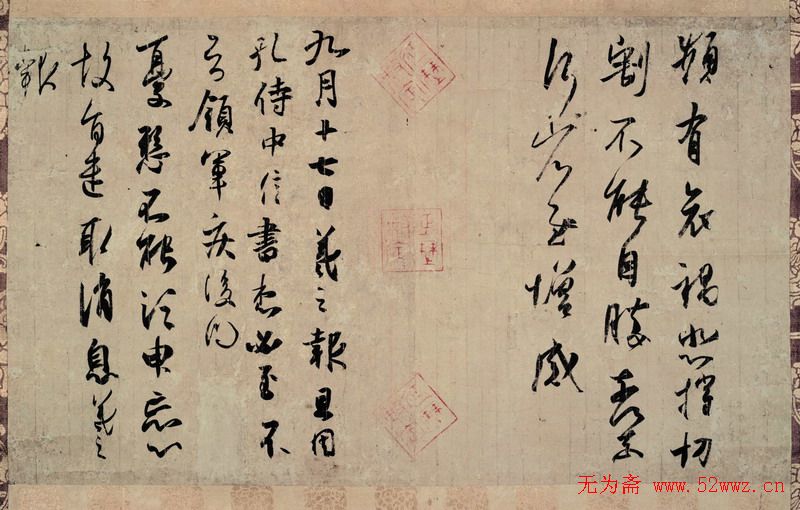 頻有哀禍悲摧切
割不能自勝奈何奈
何省慰增感
九月十七日羲之報且因
孔侍中信書想必至不
知領軍疾後問
憂懸不能須臾忘心
故旨遣取消息羲之
報
无为斋 www.52wwz.cn